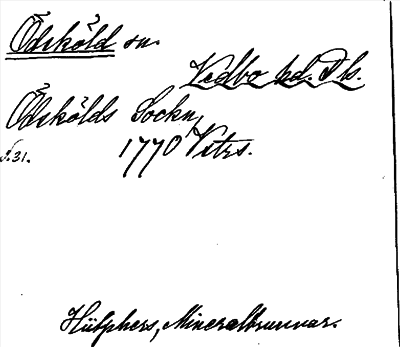 Ödsköld sn.
Vedbo hd. Dls.
Ödskölds Sockn,
s. 31. 1770 Vetrs.
Hülphers, Mineralbrunnar.